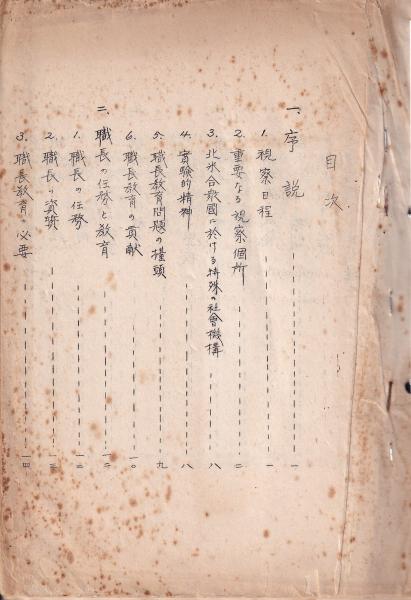 目次
一、序説 一
1. 視察日程 一
2. 重要なる視察個所 二
3. 北米合衆國に於ける特殊の社會機構 八
4. 實驗的精神 八
5. 職長教育問題の擡頭 九
6. 職長教育の貢献 一〇
二、職長の任務と教育 一二
1. 職長の任務 一二
2. 職長の資質 一三
3. 職長教育の必要 一四